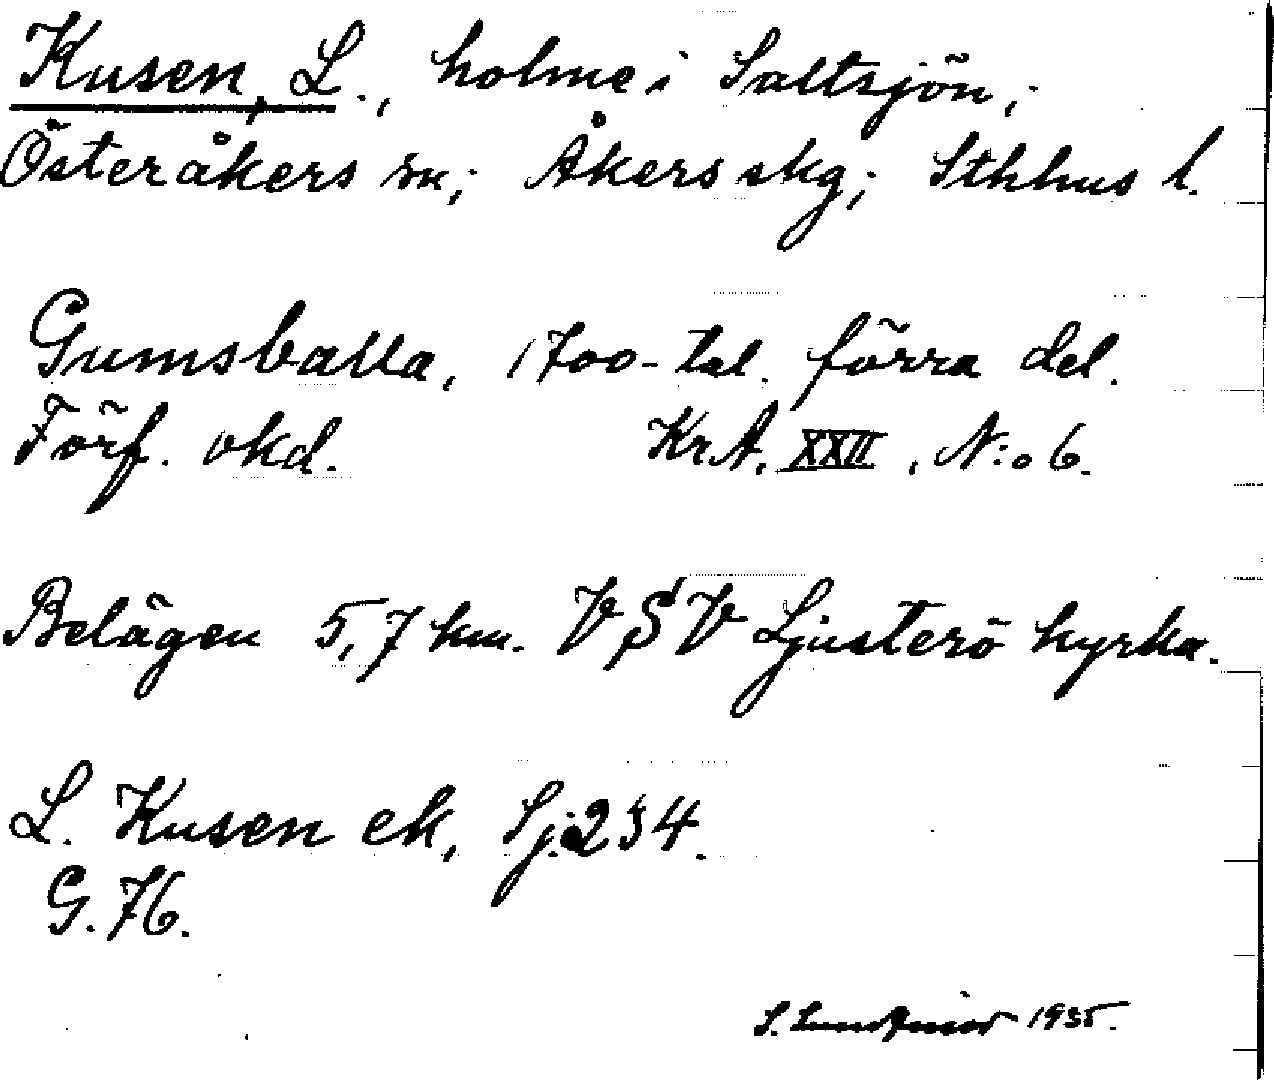 Kusen, L., holme i Saltsjön,
Österåkers sn; Åkers skg; Sthlms l.
Gumsballa, 1700-tal. förra del.
Förf. okd. KrA. XXII, N:o 6.
Belägen 5,7 km. VSV Ljusterö kyrka.
L. Kusen ek, Sj. 234.
G. 76.
S. 1935.